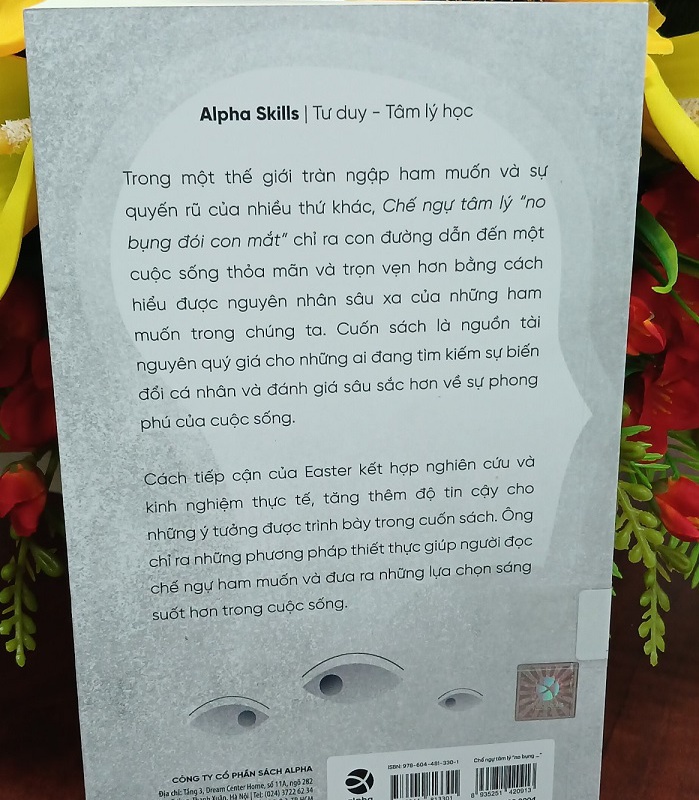 Alpha Skills | Tư duy - Tâm lý học
Trong một thế giới tràn ngập ham muốn và sự
quyến rũ của nhiều thứ khác, Chế ngự tâm lý “no
bụng đói con mắt” chỉ ra con đường dẫn đến một
cuộc sống thỏa mãn và trọn vẹn hơn bằng cách
hiểu được nguyên nhân sâu xa của những ham
muốn trong chúng ta. Cuốn sách là nguồn tài
nguyên quý giá cho những ai đang tìm kiếm sự biến
đổi cá nhân và đánh giá sâu sắc hơn về sự phong
phú của cuộc sống.
Cách tiếp cận của Easter kết hợp nghiên cứu và
kinh nghiệm thực tế, tăng thêm độ tin cậy cho
những ý tưởng được trình bày trong cuốn sách. Ông
chỉ ra những phương pháp thiết thực giúp người đọc
chế ngự ham muốn và đưa ra những lựa chọn sáng
suốt hơn trong cuộc sống.
CÔNG TY CỔ PHẦN SÁCH ALPHA
Địa chỉ: Tầng 3, Dream Center Home, số 11A, ngõ 282
Thanh Xuân, Hà Nội | Tel: (024) 3722 62 34
alpha
ISBN: 978-604-481-330-1
Chế ngự tâm lý “no bụng ...”
8 935251 420913